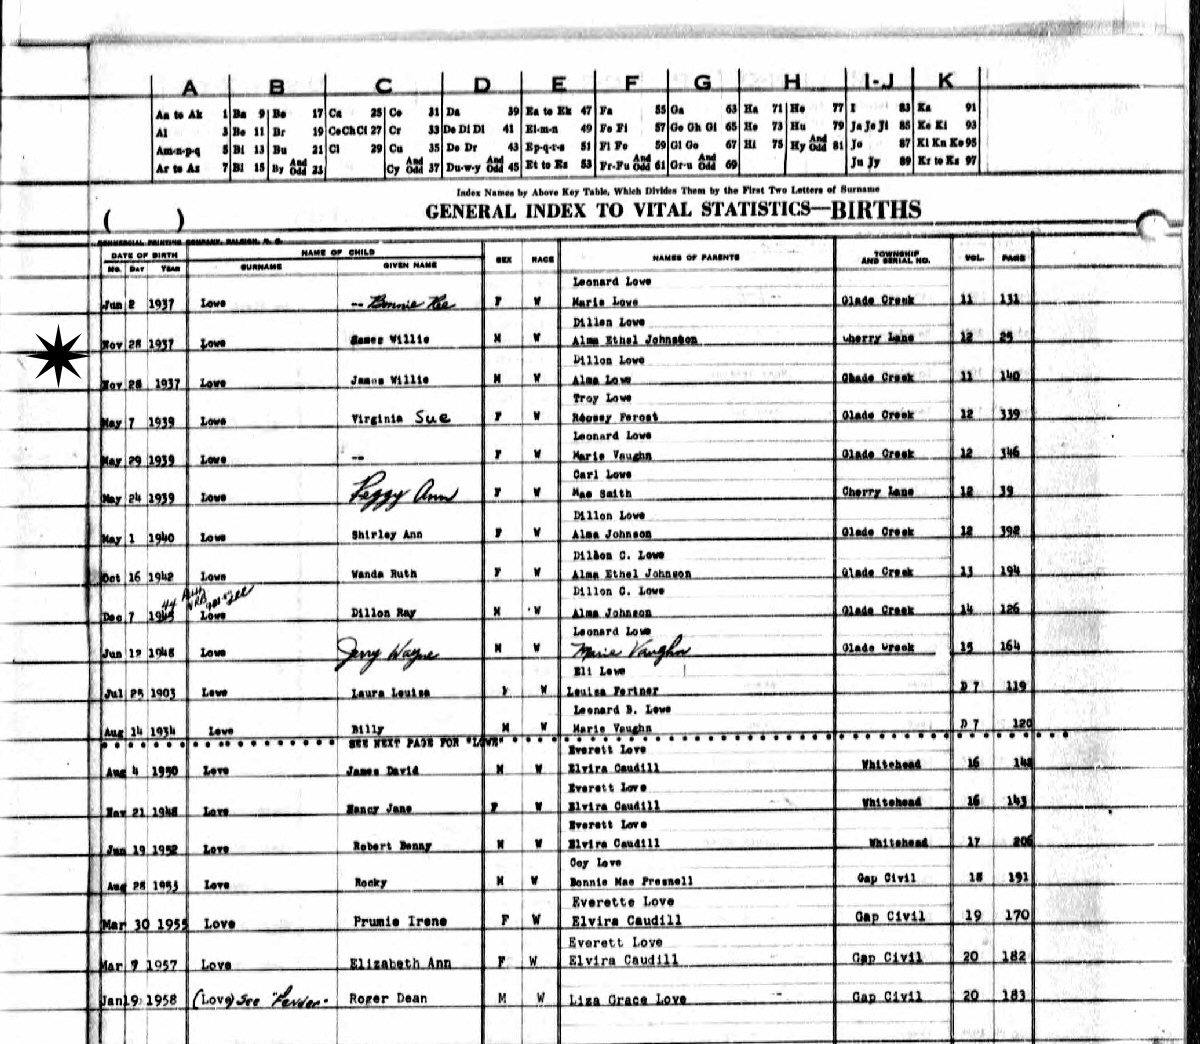 A B C D E F G H I-J K
Aa to Ak 1 Ba 9 Bo 17 Ca 25 Co 31 Da 39 Ea to Ek 47 Fa 55 Ga 63 Ha 71 Ho 77 I 83 Ka 91
Al 3 Be 11 Br 19 CeChCi 27 Cr 33 De Di Dl 41 El-m-n 49 Fe Fi 57 Ge Gh Gi 65 He 73 Hu 79 Ja Je Ji 85 Ke Ki 93
Am-n-p-q 5 Bi 13 Bu 21 Cl 29 Cu 35 Do Dr 43 Ep-q-r-s 51 Fl Fo 59 Gl Go 67 Hi 75 Hy And Odd 81 Jo 87 Kl Kn Ko 95
Ar to As 7 Bl 15 By And Odd 23 Cy And Odd 37 Du-w-y And Odd 45 Et to Es 53 Fr-Fu And Odd 61 Gr-u And Odd 69 Ju Jy 89 Kr to Ks 97
Index Names by Above Key Table, Which Divides Them by the First Two Letters of Surname
( ) GENERAL INDEX TO VITAL STATISTICS—BIRTHS
COMMERCIAL PRINTING COMPANY, RALEIGH, N. C.
DATE OF BIRTH NAME OF CHILD SEX RACE NAMES OF PARENTS TOWNSHIP AND SERIAL NO. VOL. PAGE
MO. DAY YEAR SURNAME GIVEN NAME
Leonard Lowe
Jun 2 1937 Lowe -- Bonnie Ree F W Marie Lowe Glade Creek 11 131
Dillon Lowe
Nov 28 1937 Lowe James Willie M W Alma Ethel Johnston Cherry Lane 12 25
Dillon Lowe
Nov 28 1937 Lowe James Willie M W Alma Lowe Glade Creek 11 140
Troy Lowe
May 7 1939 Lowe Virginia Sue F W Glade Creek 12 339
Leonard Lowe
May 29 1939 Lowe -- F W Marie Vaughn Glade Creek 12 346
Carl Lowe
May 24 1939 Lowe Peggy Ann F W Mae Smith Cherry Lane 12 39
Dillon Lowe
May 1 1940 Lowe Shirley Ann F W Alma Johnson Glade Creek 12 392
Dillon C. Lowe
Oct 16 1942 Lowe Wanda Ruth F W Alma Ethel Johnson Glade Creek 13 194
Dillon C. Lowe
44
Dec 7 Lowe Dillon Ray M W Alma Johnson Glade Creek 14 126
Leonard Lowe
Jun 12 1948 Lowe Jerry Wayne M W Marie Vaughn Glade Creek 15 164
Eli Lowe
Jul 25 1903 Lowe Laura Louisa F W Louisa Fortner D 7 119
Leonard B. Lowe
Aug 14 1934 Lowe Billy M W Marie Vaughn D 7 120
SEE NEXT PAGE FOR "LOWE"
Everett Love
Aug 4 1950 Love James David M W Elvira Caudill Whitehead 16 148
Everett Love
Nov 21 1948 Love Nancy Jane F W Elvira Caudill Whitehead 16 143
Everett Love
Jun 19 1952 Love Robert Benny M W Elvira Caudill Whitehead 17 206
Coy Love
Aug 28 1953 Love Rocky M W Bonnie Mae Presnell Gap Civil 18 191
Everette Love
Mar 30 1955 Love Prumie Irene F W Elvira Caudill Gap Civil 19 170
Everett Love
Mar 9 1957 Love Elizabeth Ann F W Elvira Caudill Gap Civil 20 182
Jan 9 1958 (Love) See Roger Dean M W Liza Grace Love Gap Civil 20 183